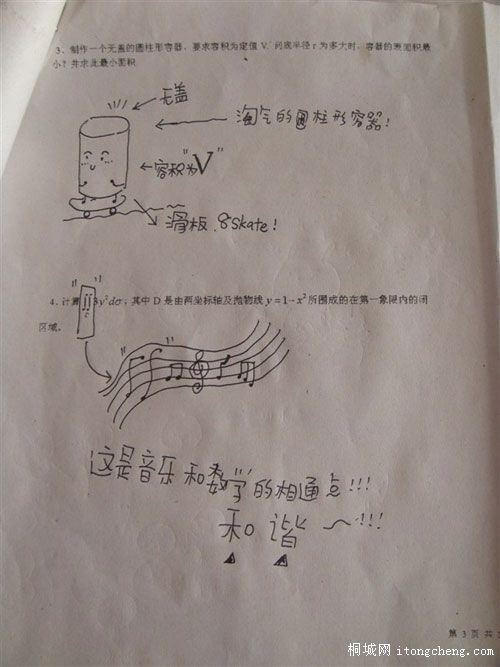 3、制作一个无盖的圆柱形容器，要求容积为定值 V，问底半径 r 为多大时，容器的表面积最
小？并求此最小面积
无盖
淘气的圆柱形容器!
容积为"V"
滑板 Skate!
4、计算 y²dσ，其中 D 是由两坐标轴及抛物线 y=1-x² 所围成的在第一象限内的闭
区域。
这是音乐和数学的相通点!!!
和谐~!!!
第 3 页 共
桐城网 itongcheng.com